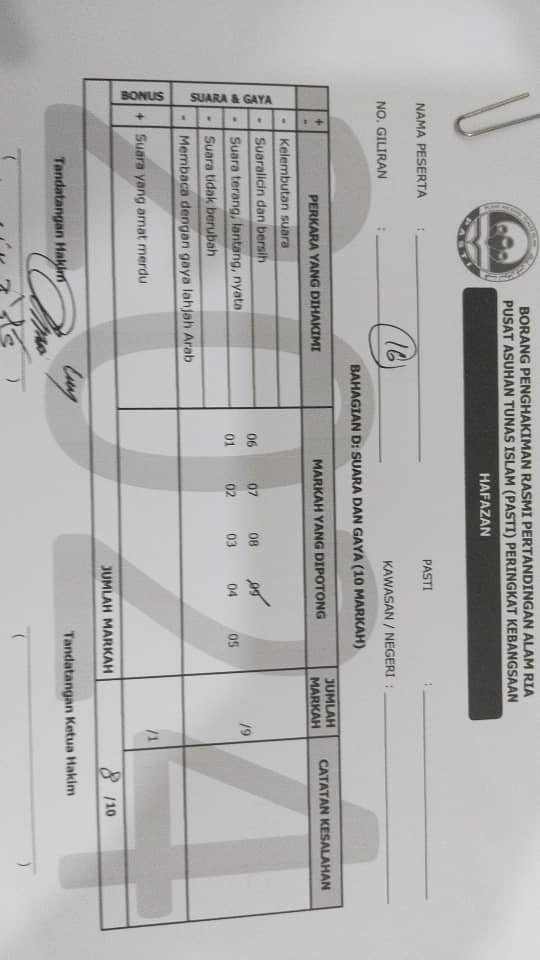 BORANG PENGHAKIMAN RASMI PERTANDINGAN ALAM RIA
PUSAT ASUHAN TUNAS ISLAM (PASTI) PERINGKAT KEBANGSAAN
HAFAZAN
PASTI
NAMA PESERTA :
PASTI :
NO. GILIRAN : 16
KAWASAN / NEGERI :
2024
BAHAGIAN D: SUARA DAN GAYA (10 MARKAH)
+ - PERKARA YANG DIHAKIMI MARKAH YANG DIPOTONG JUMLAH MARKAH CATATAN KESALAHAN
SUARA & GAYA
- Kelembutan suara
- Suaralicin dan bersih
- Suara terang, lantang, nyata
- Suara tidak berubah
- Membaca dengan gaya lahjah Arab
06 07 08 09
01 02 03 04 05
/9
BONUS + Suara yang amat merdu /1
JUMLAH MARKAH 8 /10
Tandatangan Hakim
Tandatangan Ketua Hakim
( )
( )